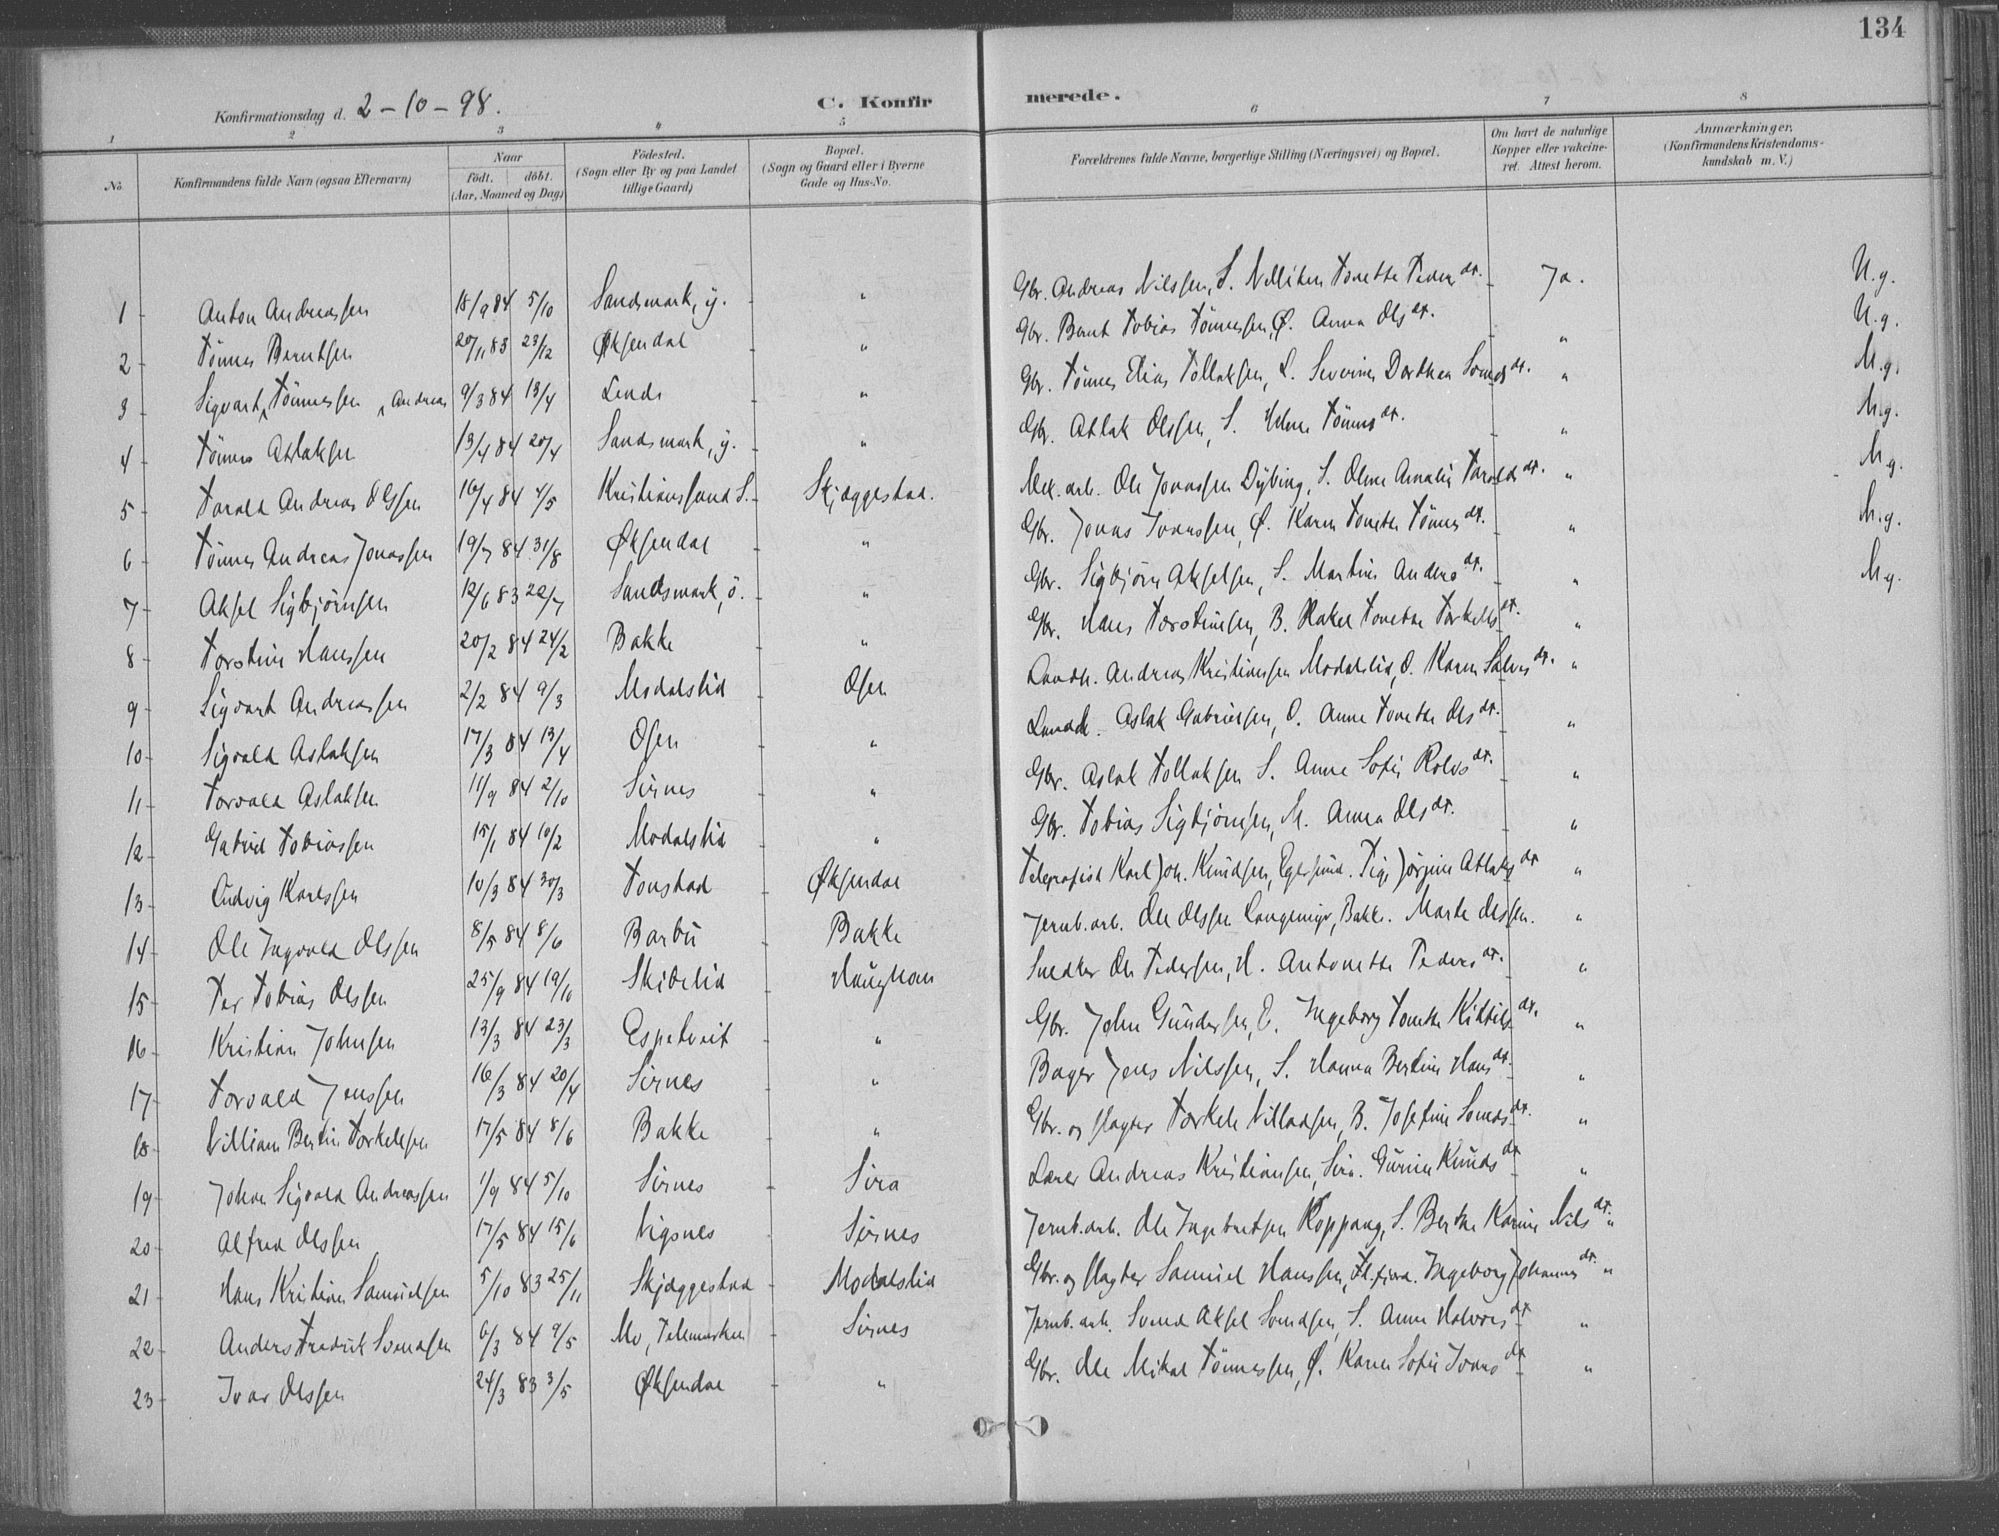 134
Konfirmationsdag d. 2-10-98.
C. Konfirmerede.
1 2 3 4 5 6 7 8
No. Konfirmandens fulde Navn (ogsaa Efternavn) Naar födt. döbt. (Aar, Maaned og Dag) Födested. (Sogn eller By og paa Landet tillige Gaard) Bopæl. (Sogn og Gaard eller i Byerne Gade og Hus-No. Forældrenes fulde Navne, borgerlige Stilling (Næringsvei) og Bopæl. Om havt de naturlige Kopper eller vakcineret. Attest herom. Anmærkninger. (Konfirmandens Kristendomskundskab m. V.)
1 Anton Andreassen 18/9 84 5/10 Sandsmark, y. " Gbr. Andreas Nilssen, S. Tonette Peders dr. Ja. M.g.
2 Tønnes Berntsen 20/11 83 23/12 Øksendal " Gbr. Bernt Tobias Tønnessen, Ø. Anna Ols dr. " M.g.
3 Sigvart Tønnessen Andreas 9/3 84 13/4 Lunde " Gbr. Tønnes Elias Tollaksen, L. Severine Dorthea Svends dr. " M.g.
4 Tønnes Atlaksen 13/4 84 20/4 Sandsmark, y. " Gbr. Atlak Olssen, S. Helene Tønnes dr. " M.g.
5 Torald Andreas Olssen 16/4 84 4/5 Kristianssand S. Skjæggestad. arb. Ole Jonassen Dybing, S. Olene Amalie Toralds dr. " M.g.
6 Tønnes Andreas Jonassen 19/7 84 31/8 Øksendal " Gbr. Jonas Ivarssen, Ø. Karen Tonette Tønnes dr. " M.g.
7 Aksel Sigbjørnsen 12/6 83 22/7 Sandsmark, ö. " Gbr. Sigbjørn Akselsen, S. Martine Anders dr. " M.g.
8 Torstein Hanssen 20/2 84 24/2 Bakke " Gbr. Hans Torsteinsen, B. Rakel Tonette Torkells dr. "
9 Sigvart Andreassen 2/2 84 9/3 Modalslid Osen Landh. Andreas Kristiansen Modalslid, O. Karen Salves dr. "
10 Sigvald Aslaksen 17/3 84 13/4 Osen " Landh. Aslak Gabrielsen, O. Anne Tonette Ols dr. "
11 Torvald Aslaksen 11/9 84 2/10 Sirnes " Gbr. Aslak Tollaksen S. Anne Sofie Rolvs dr. "
12 Gabriel Tobiassen 15/1 84 10/2 Modalslid " Gbr. Tobias Sigbjørnsen, M. Anna Ols dr. "
13 Ludvig Karlssen 10/3 84 30/3 Tonstad Øksendal Telegrafist Karl Joh. Knudsen, Egersund. Pige Jørgine Atlaks dr. "
14 Ole Ingvald Olssen 8/5 84 8/6 Barbu Bakke Jernb.arb. Ole Olssen Langemyr, Bakke. Marte Olssen. "
15 Per Tobias Olssen 25/9 84 19/10 Skibelid Haughom Snedker Ole Pedersen, H. Antonette Peders dr. "
16 Kristian Johnsen 13/3 84 23/3 Espetveit " Gbr. John Gundersen, E. Ingeborg Tonette Kittils dr. "
17 Torvald Jenssen 16/3 84 20/4 Sirnes " Bager Jens Nilssen, S. Hanna Bertine Hans dr. "
18 Villiam Bertin Torkelsen 17/5 84 8/6 Bakke " Gbr. og slagter Torkel Villadsen, B. Josefine Svends dr. "
19 Johan Sigvald Andreassen 1/9 84 5/10 Sirnes Sira Lærer Andreas Kristiansen, Sira. Gurine Knuds dr. "
20 Alfred Olssen 17/5 84 15/6 Vigsnes Sirnes Jernb.arb. Ole Ingebretsen Koppang, S. Berthe Karine Nils dr. "
21 Hans Kristian Samuelsen 5/10 83 25/11 Skjæggestad Modalslid Gbr. og slagter Samuel Hanssen, Fl.fjord. Ingeborg Johannes dr. "
22 Anders Fredrik Svendsen 6/3 84 9/5 Mo, Telemarken Sirnes Jernb.arb. Svend Aksel Svendsen, S. Anne Halvors dr. "
23 Ivar Olssen 24/3 83 3/5 Øksendal " Gbr. Ole Mikal Tønnessen, Ø. Karen Sofie Ivars dr. "